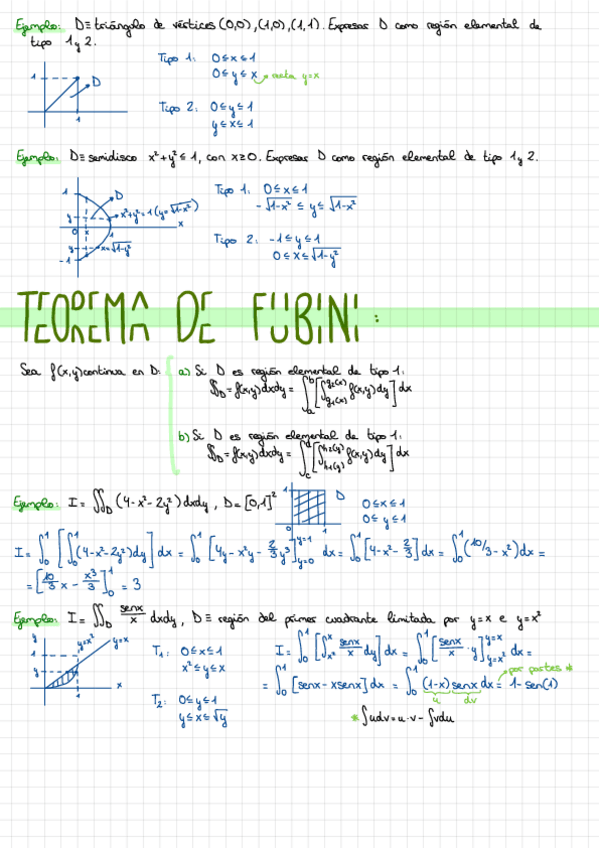 Ejemplo: D≡ triángulo de vértices (0,0), (1,0), (1,1). Expresar D como región elemental de
tipo 1 y 2.
Tipo 1: 0≤x≤1
0≤y≤x → recta y=x
Tipo 2: 0≤y≤1
y≤x≤1
1
D
1
Ejemplo: D≡ semidisco x²+y²≤1, con x≥0. Expresar D como región elemental de tipo 1 y 2.
Tipo 1: 0≤x≤1
-√1-x² ≤ y ≤ √1-x²
Tipo 2: -1≤y≤1
0≤x≤√1-y²
1
D
y
x²+y²=1 (y=√1-x²)
x
0 x 1
y
x=√1-y²
-1
TEOREMA DE FUBINI:
Sea f(x,y) continua en D: a) Si D es región elemental de tipo 1:
∬_D = f(x,y)dxdy = ∫_a^b [∫_{g1(x)}^{g2(x)} f(x,y)dy] dx
b) Si D es región elemental de tipo 1:
∬_D = f(x,y)dxdy = ∫_c^d [∫_{h1(y)}^{h2(y)} f(x,y)dy] dx
Ejemplo: I = ∬_D (4-x²-2y²) dxdy, D=[0,1]²
1
D
1
0≤x≤1
0≤y≤1
I = ∫_0^1 [∫_0^1 (4-x²-2y²)dy] dx = ∫_0^1 [4y - x²y - 2/3 y³]_{y=0}^{y=1} dx = ∫_0^1 [4-x²-2/3] dx = ∫_0^1 (10/3 - x²) dx =
= [10/3 x - x³/3]_0^1 = 3
Ejemplo: I = ∬_D senx/x dxdy, D ≡ región del primer cuadrante limitada por y=x e y=x²
y
y=x²
y=x
1
y
x
1
T1: 0≤x≤1
x²≤y≤x
T2: 0≤y≤1
y≤x≤√y
I = ∫_0^1 [∫_{x²}^x senx/x dy] dx = ∫_0^1 [senx/x · y]_{y=x²}^{y=x} dx =
= ∫_0^1 [senx - xsenx] dx = ∫_0^1 (1-x) senx dx = 1-sen(1)
u dv
por partes *
* ∫udv = u·v - ∫vdu